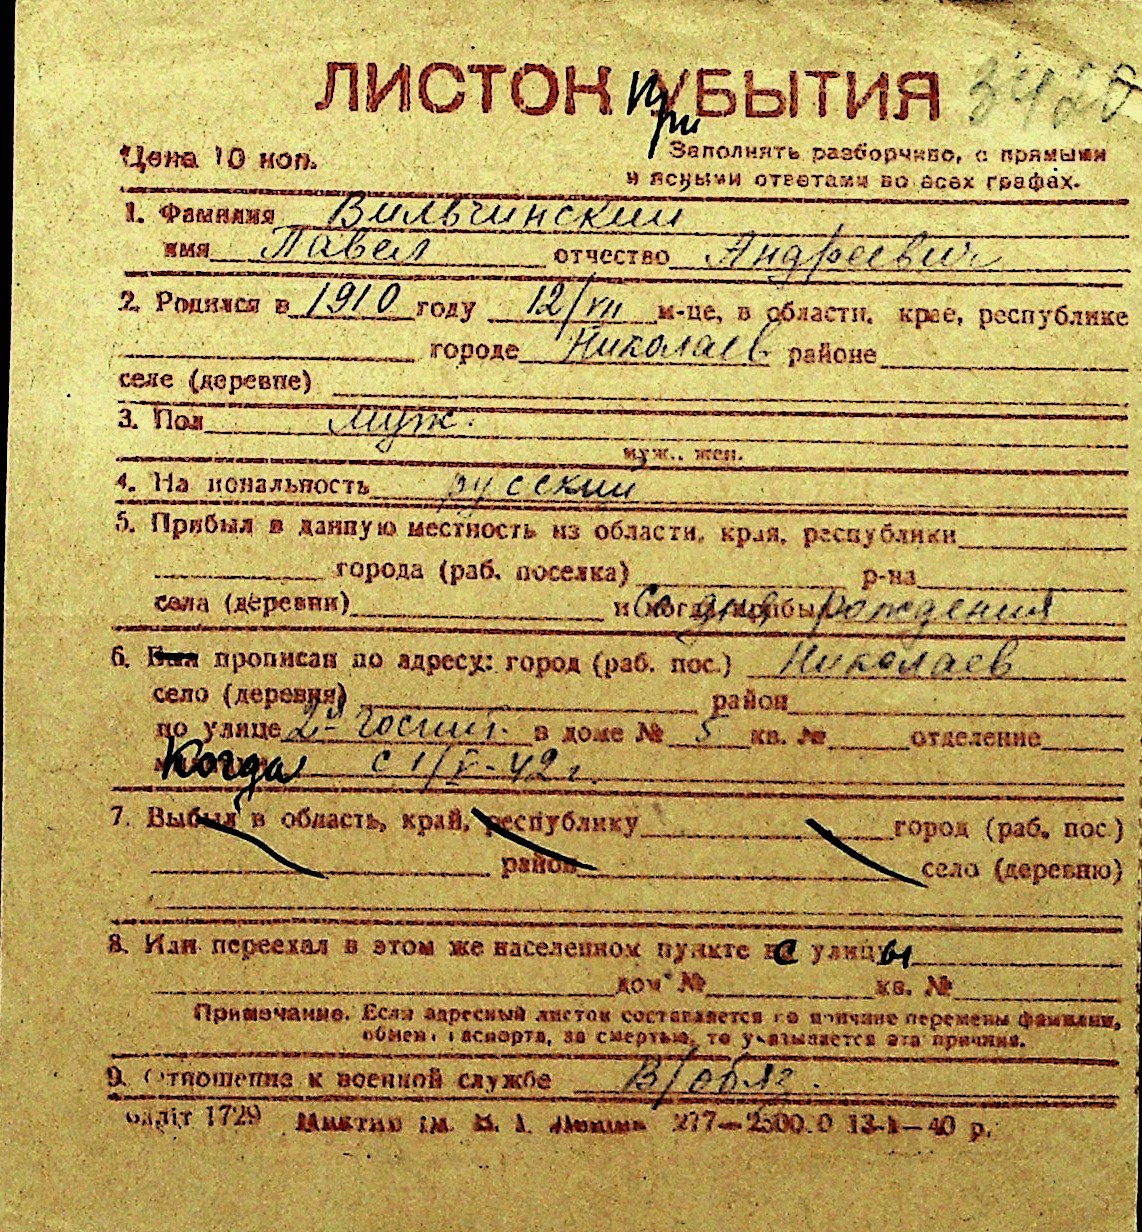 ЛИСТОК При УБЫТИЯ 3428
Цена 10 коп.
Заполнять разборчиво, с прямыми
и ясными ответами во всех графах.
1. Фамилия Вильчинский
имя Павел отчество Андреевич
2. Родился в 1910 году 12/VII м-це, в области, крае, республике
городе Николаев районе
селе (деревне)
3. Пол муж.
муж., жен.
4. Национальность русский
5. Прибыл в данную местность из области, края, республики
города (раб. поселка) р-на
села (деревни) и когда прибыл Со дня рождения
6. Был прописан по адресу: город (раб. пос.) Николаев
село (деревня) район
по улице 2й Госпит. в доме № 5 кв. № отделение
Когда с 1/V-42 г.
7. Выбыл в область, край, республику город (раб. пос.)
район село (деревню)
8. Или переехал в этом же населенном пункте с улицы
дом № кв. №
Примечание. Если адресный листок составляется по причине перемены фамилии,
обмена паспорта, за смертью, то указывается эта причина.
9. Отношение к военной службе В/обяз.
1729 277—2500.0 13-I—40 р.